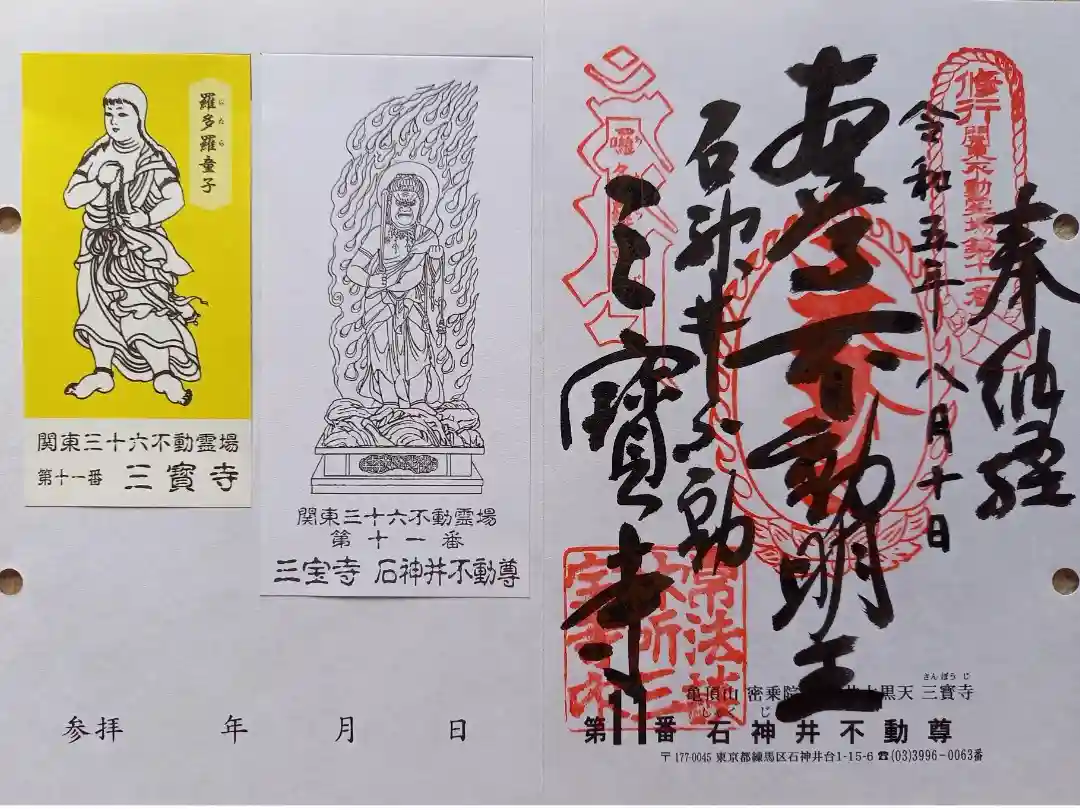 羅多羅童子
にたら
関東三十六不動霊場
第十一番 三寶寺
関東三十六不動霊場
第十一番
三宝寺 石神井不動尊
参拝 年 月 日
奉納経
修行
関東不動霊場第十一番
令和五年八月十日
大聖不動明王
石神井不動
三寶寺
さんぽうじ
亀頂山 密乗院 大黒天 三寶寺
じ
第11番 石神井不動尊
〒177-0045 東京都練馬区石神井台1-15-6 ☎(03)3996-0063番